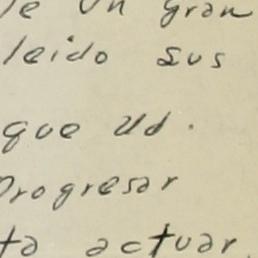 le un gran
leido sus
que Ud.
Progresar
ta actuar.